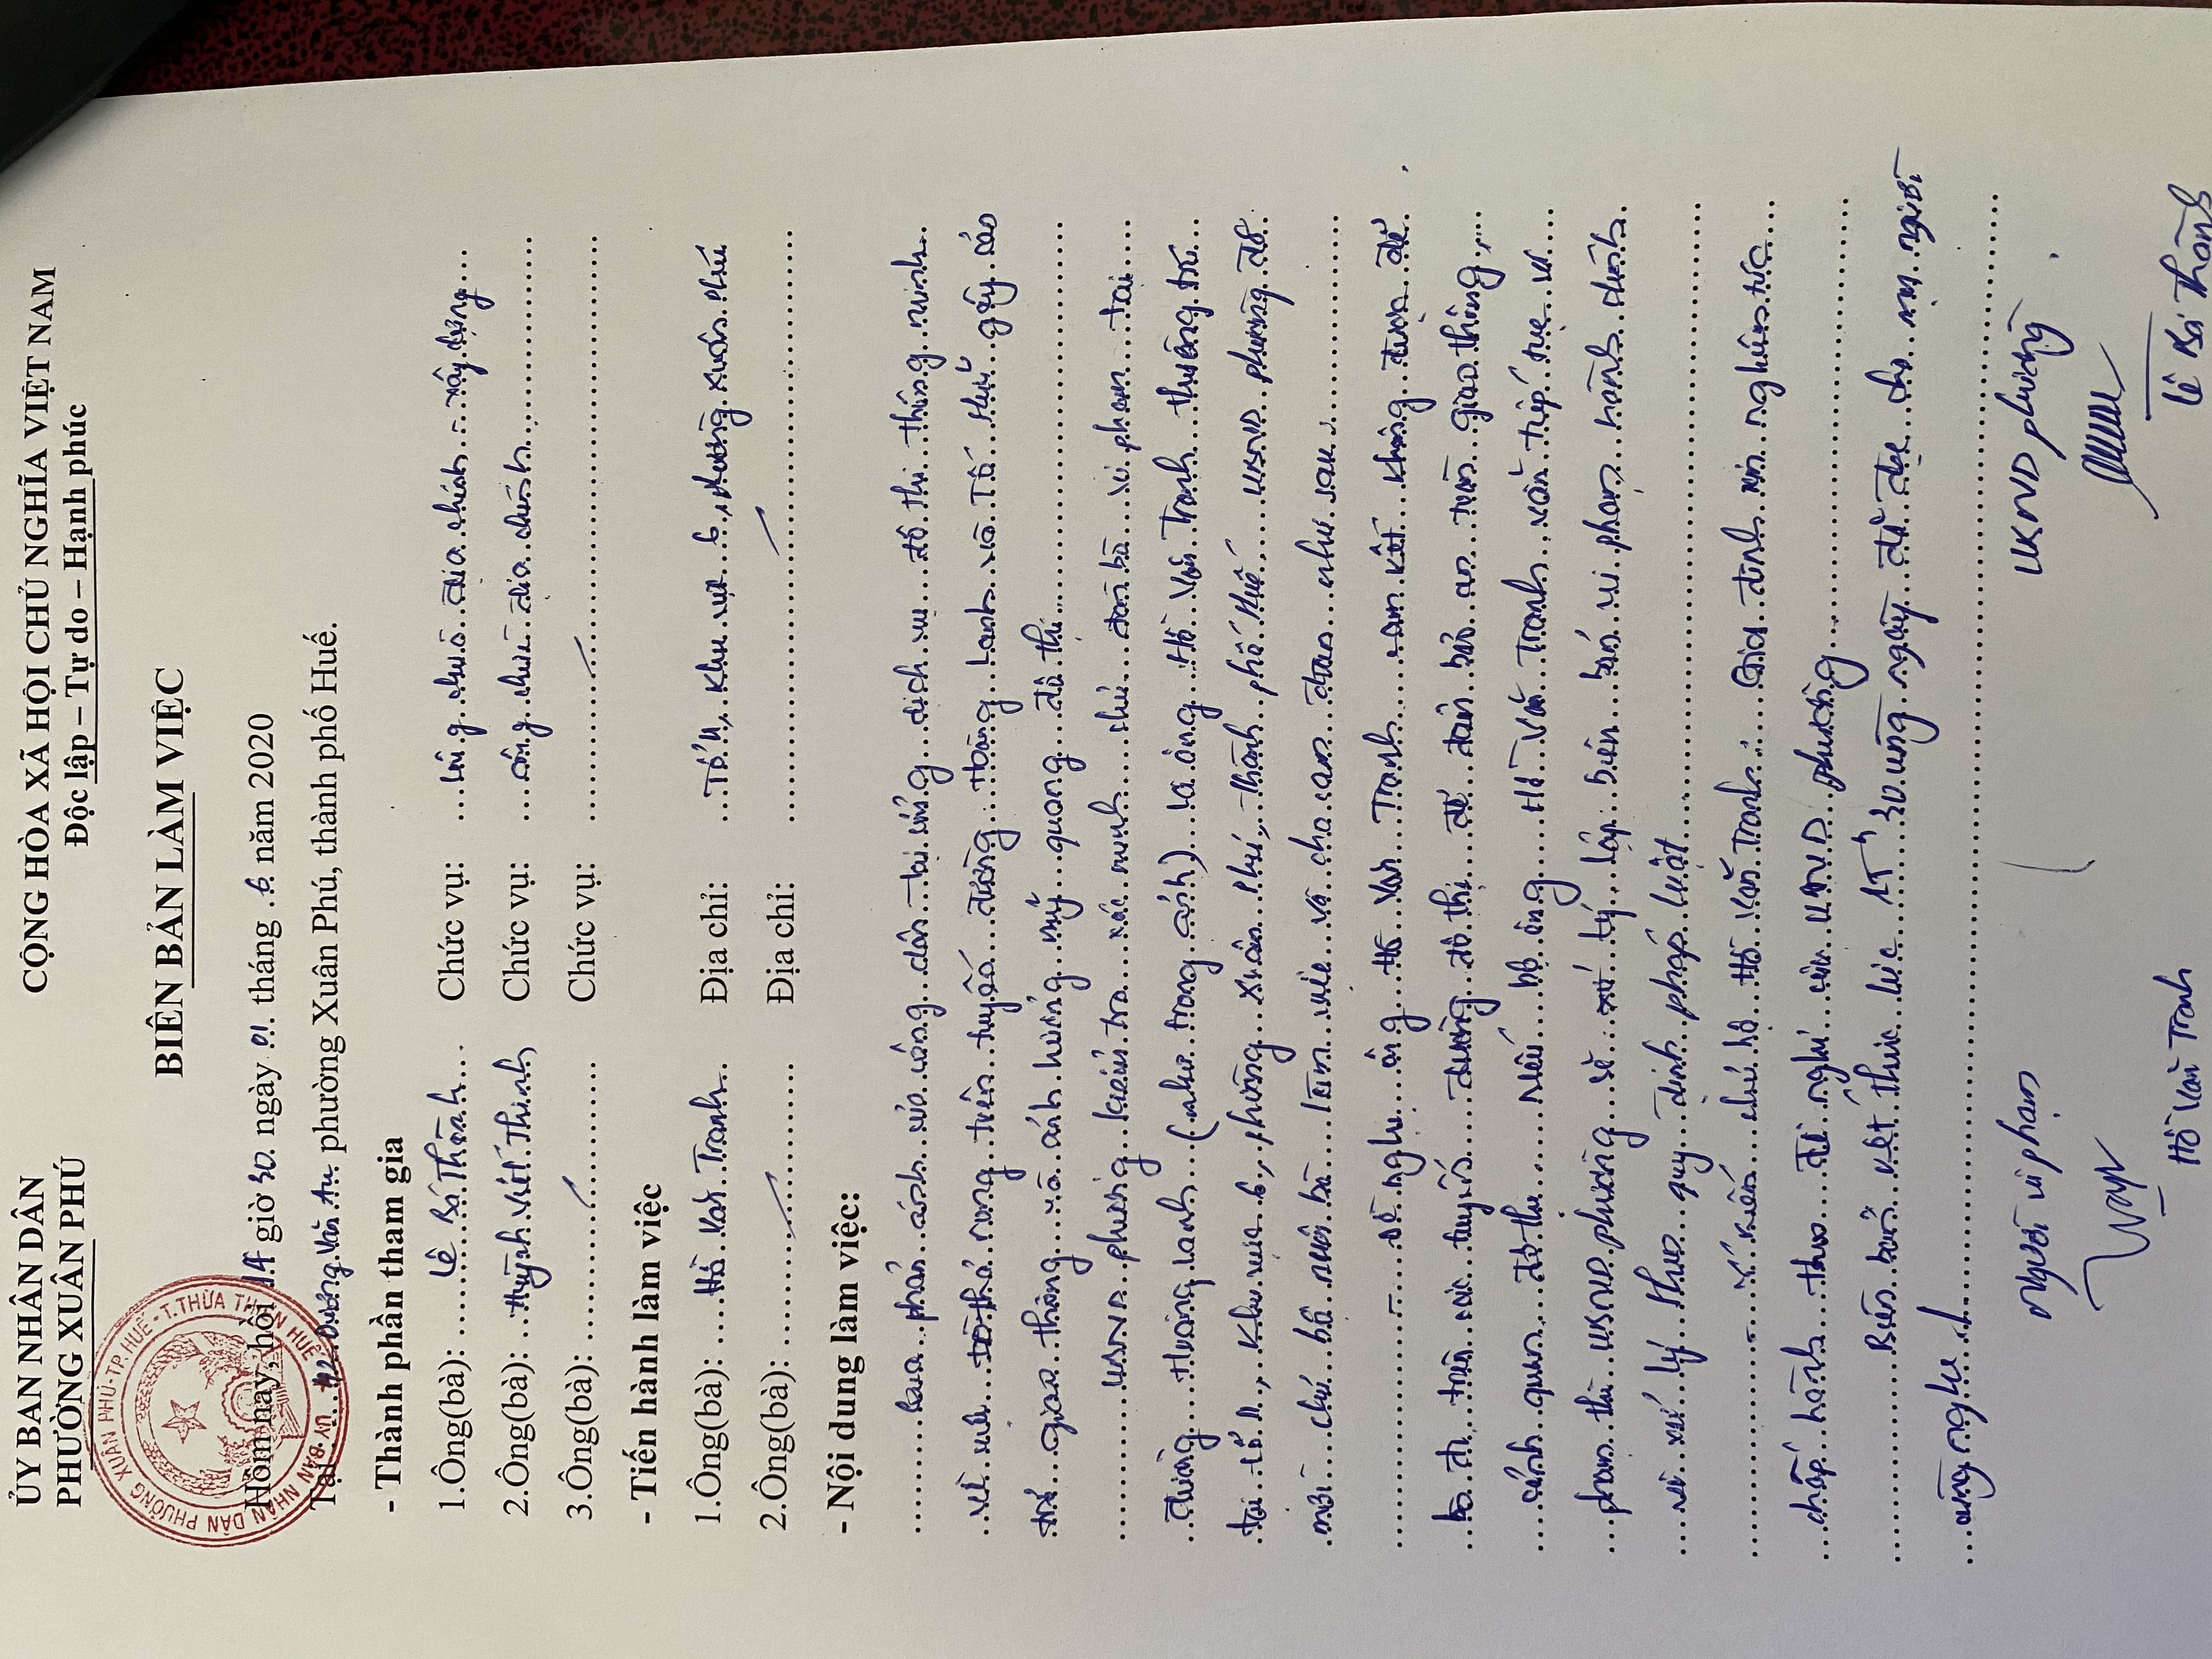 ỦY BAN NHÂN DÂN
PHƯỜNG XUÂN PHÚ
CỘNG HÒA XÃ HỘI CHỦ NGHĨA VIỆT NAM
Độc lập – Tự do – Hạnh phúc
BIÊN BẢN LÀM VIỆC
Hôm nay, hồi 14 giờ 30 ngày 01 tháng 6 năm 2020
Tại 42 Dương Văn An phường Xuân Phú, thành phố Huế.
- Thành phần tham gia
1.Ông(bà): Lê Bá Thành Chức vụ: công chức địa chính - xây dựng
2.Ông(bà): Huỳnh Viết Thinh Chức vụ: công chức địa chính
3.Ông(bà): Chức vụ:
- Tiến hành làm việc
1.Ông(bà): Hồ Văn Tranh Địa chỉ: Tổ 11, khu vực 6, phường Xuân Phú
2.Ông(bà): Địa chỉ:
- Nội dung làm việc:
Qua phản ánh của công dân tại ứng dịch vụ đô thị thông minh
về việc bò thả rong trên tuyến đường Hoàng Lanh và Tố Hữu gây cản
trở giao thông và ảnh hưởng mỹ quang đô thị
UBND phường kiểm tra xác minh chủ đàn bò vi phạm tại
đường Hoàng Lanh (như trong ảnh) là ông Hồ Văn Tranh thường trú
tại tổ 11, khu vực 6, phường Xuân Phú, thành phố Huế. UBND phường đã
mời chủ hộ nuôi bò làm việc và cho cam đoan như sau:
- Đề nghị ông Hồ Văn Tranh cam kết không được để
bò đi trên các tuyến đường đô thị để đảm bảo an toàn giao thông,
cảnh quan đô thị. Nếu hộ ông Hồ Văn Tranh vẫn tiếp tục vi
phạm thì UBND phường sẽ xử lý lập biên bản vi phạm hành chính
và xử lý theo quy định pháp luật
- Ý kiến chủ hộ Hồ Văn Tranh: Gia đình xin nghiêm túc
chấp hành theo đề nghị của UBND phường
Biên bản kết thúc lúc 15h30 cùng ngày đã đọc cho mọi người
cùng nghe.
Người vi phạm
UBND phường
Hồ Văn Tranh
Lê Bá Thành
ỦY BAN NHÂN DÂN PHƯỜNG XUÂN PHÚ-TP.HUẾ-T.THỪA THIÊN HUẾ